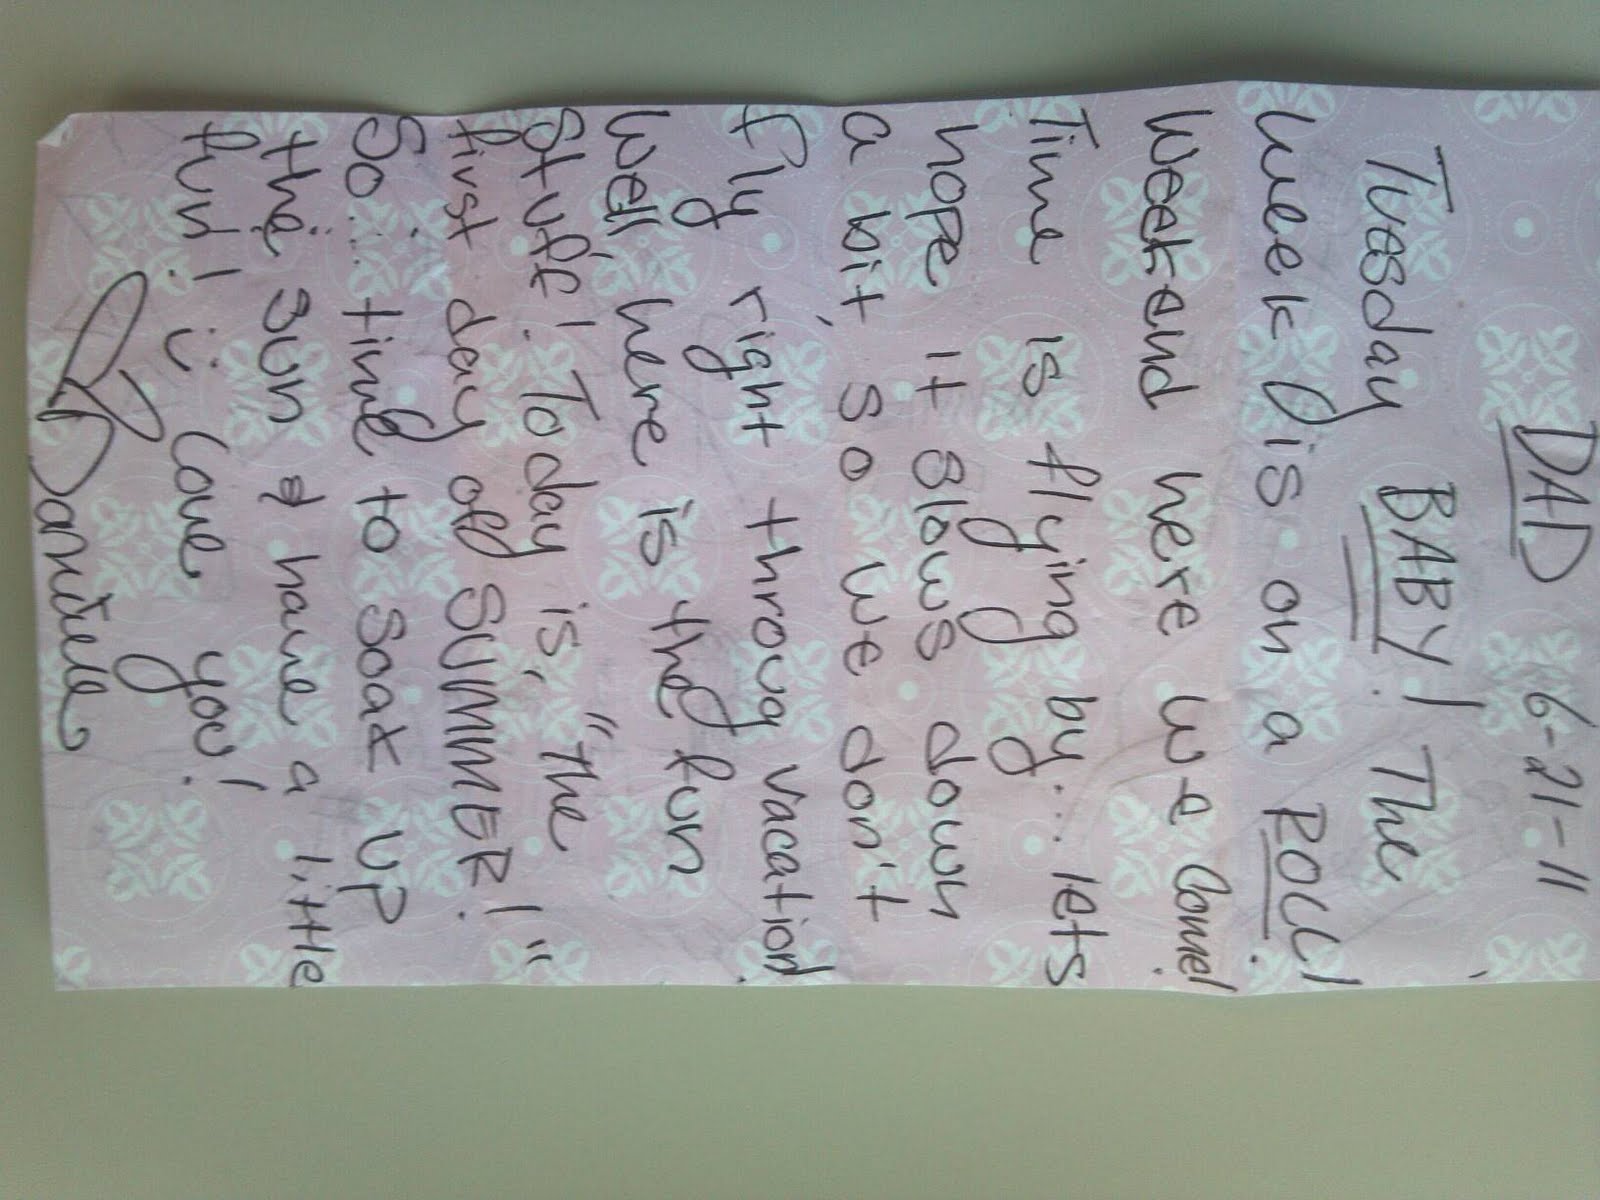 DAD 6-21-11
Tuesday BABY! The
week is on a ROLL!
Weekend here we Come!
Time is flying by... lets
hope it slows down
a bit, so we don't
fly right throug vacation!
Well, here is the fun
stuff! Today is, "The
first day off SUMMER!"
So... time to soak up
the sun & have a little
fun! Love you!
Danielle